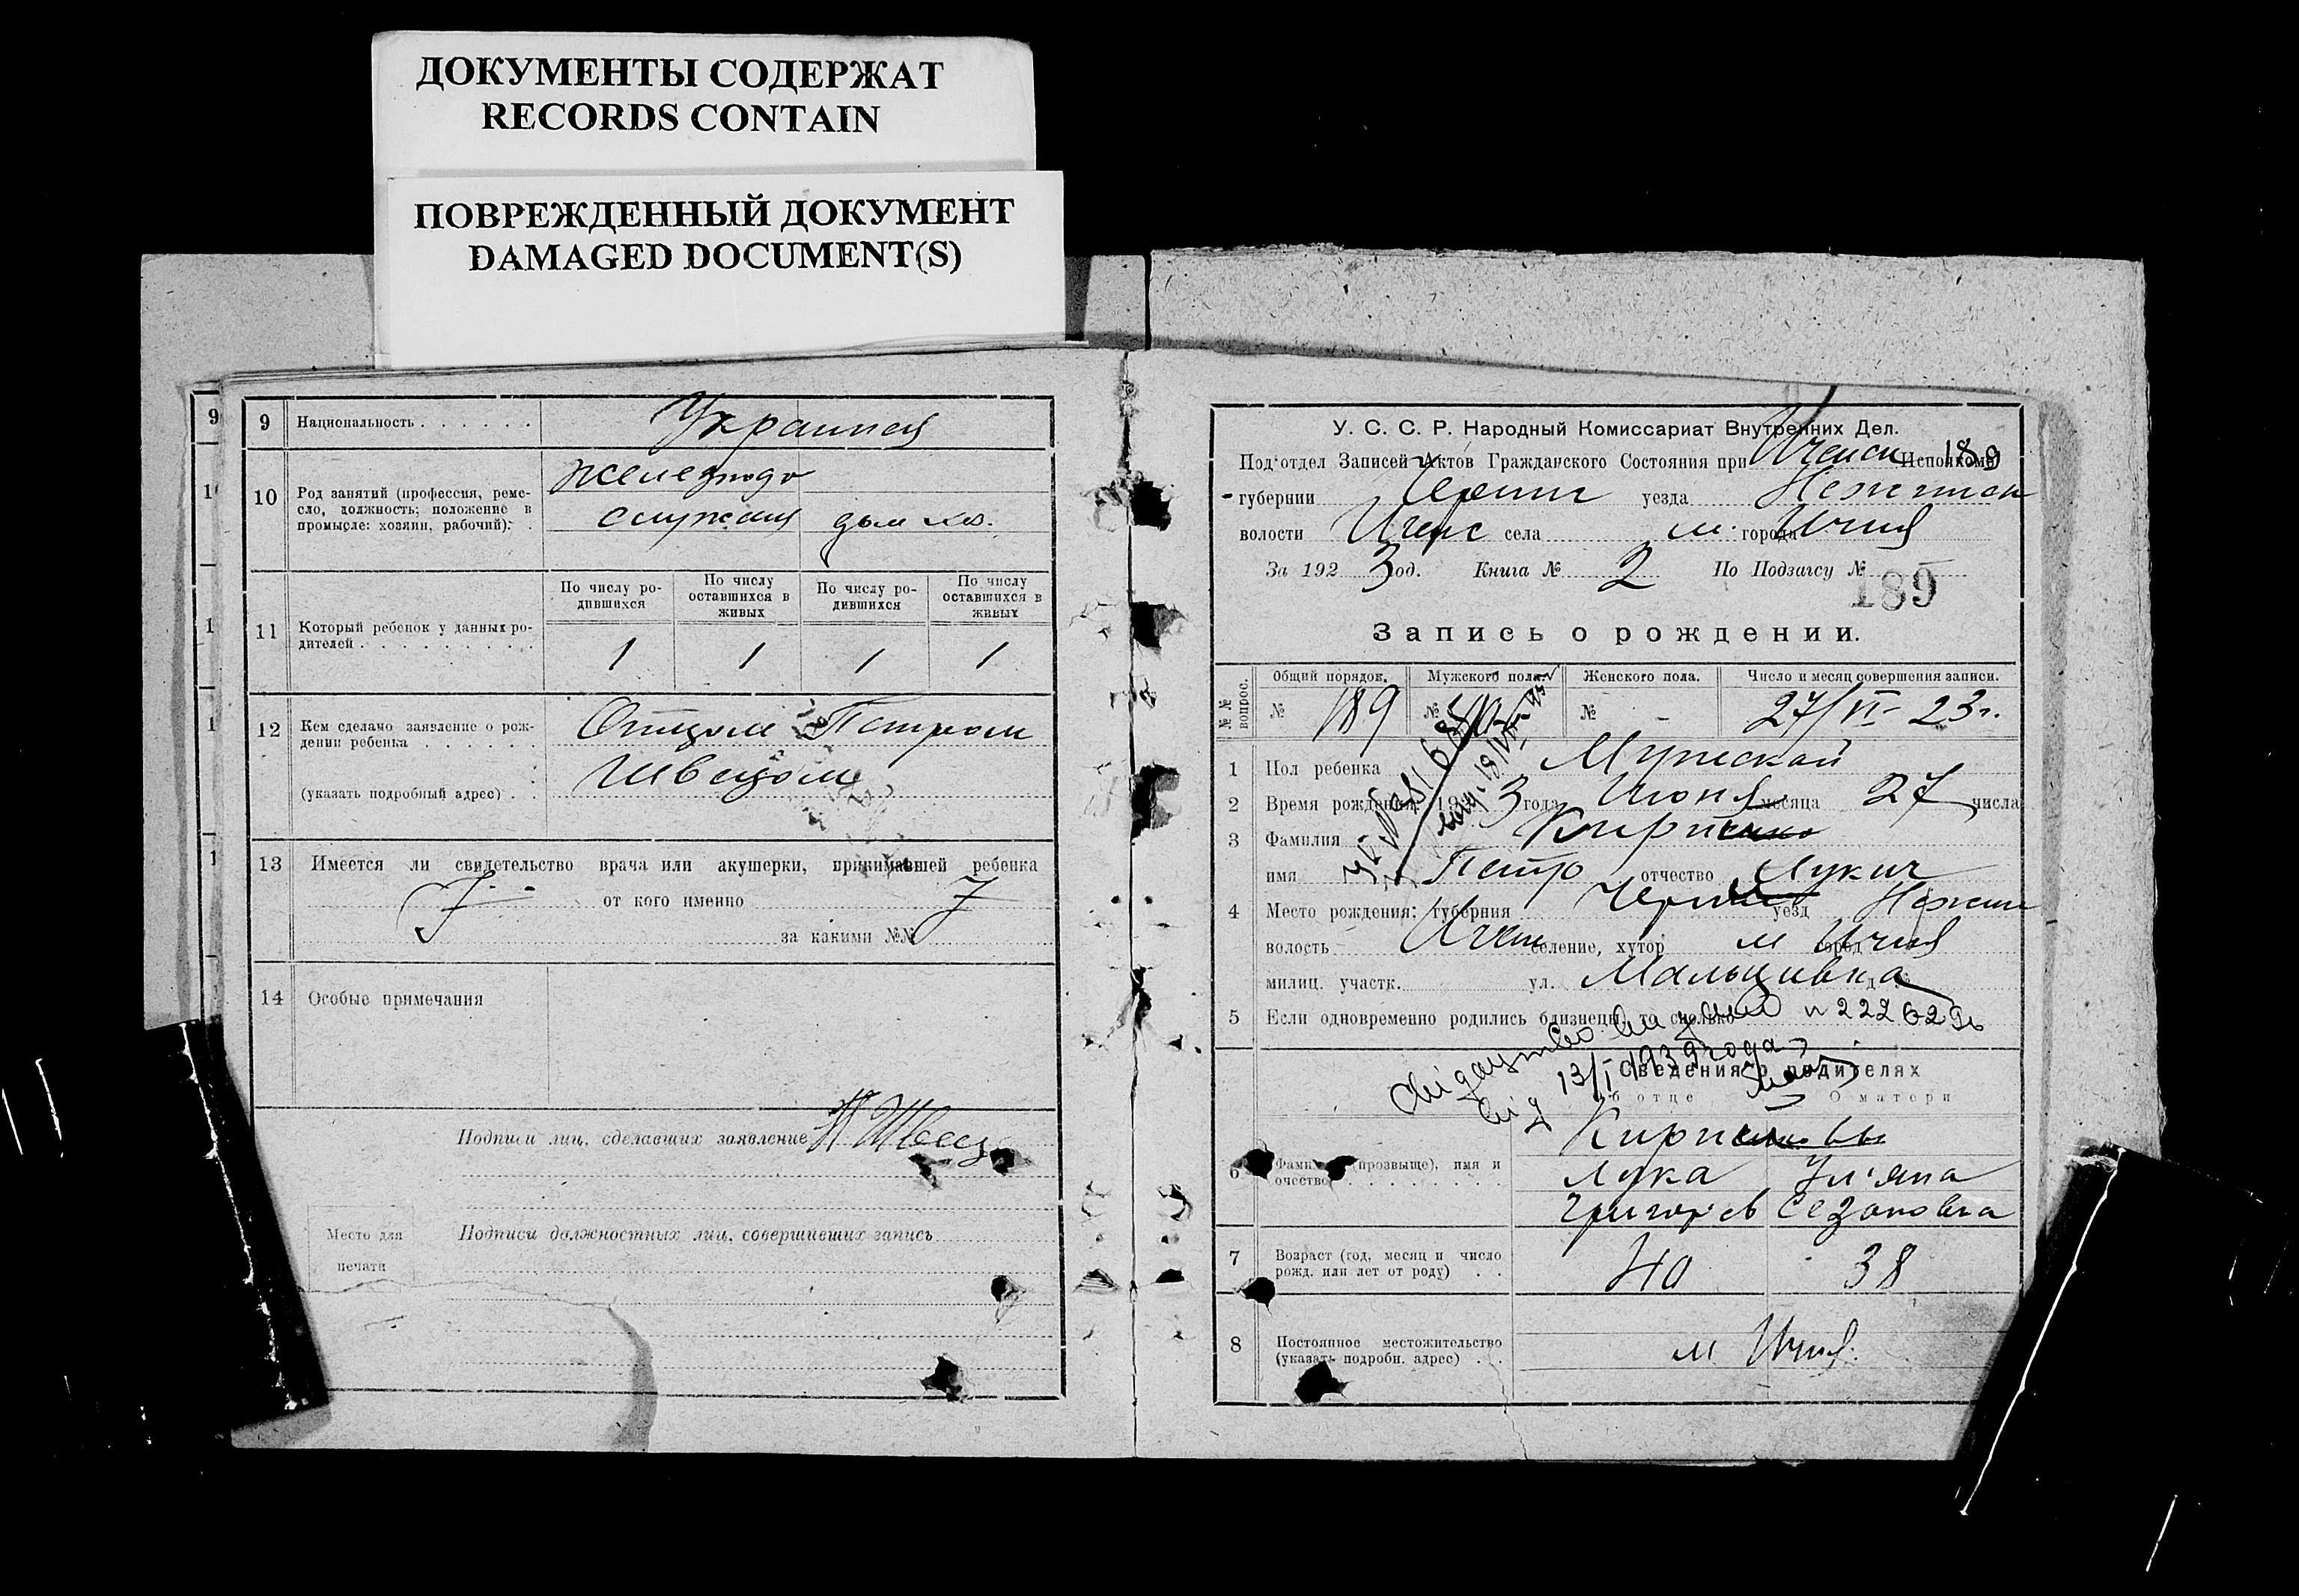 ДОКУМЕНТЫ СОДЕРЖАТ
RECORDS CONTAIN
ПОВРЕЖДЕННЫЙ ДОКУМЕНТ
DAMAGED DOCUMENT(S)
9
9 Национальность . . . . . .
10 Род занятий (профессия, реме-
сло, должность; положение в
промысле: хозяин, рабочий): .
служащ дом хоз.
По числу ро-
дившихся
По числу
оставшихся в
живых
По числу ро-
дившихся
По числу
оставшихся в
живых
11 Который ребенок у данных ро-
дителей . . . . . . . . . .
1 1 1 1
12 Кем сделано заявление о рож-
дении ребенка . . . . . .
Отцом Петром
Швецом
(указать подробный адрес) . .
13 Имеется ли свидетельство врача или акушерки, принимавшей ребенка
от кого именно
за какими №№
14 Особые примечания
Подписи лиц, сделавших заявление П Швец
Место для
печати
Подписи должностных лиц, совершивших запись
У. С. С. Р. Народный Комиссариат Внутренних Дел.
Под'отдел Записей Актов Гражданского Состояния при Иченск Исполкоме 189
губернии Черниг уезда Нежинск
волости Иченс села м. города Ичня
За 1923 год. Книга № 2 По Подзагсу № 189
Запись о рождении.
№ № вопрос.
Общий порядок.
Мужского пола.
Женского пола.
Число и месяц совершения записи.
№ 189 № № - 27/VI - 23 г.
1 Пол ребенка Мужской
2 Время рождения: 1923 года Июня месяца 27 числа
3 Фамилия
имя Петро отчество Лукич
4 Место рождения: губерния Черниг уезд Нежин
волость Ичен селение, хутор м город Ичня
милиц. участк. ул. Мальцивка
5 Если одновременно родились близнецы, то сколько
Свідоцтво видано № 222629
від 13/I 1939 года
Сведения о родителях
О отце О матери
6 Фамилия (прозвыще), имя и
отчество . . . . . . . . .
Лука Ул'яна
Григор'ев Сезоновна
7 Возраст (год, месяц и число
рожд. или лет от роду) . .
40 38
8 Постоянное местожительство
(указать подробн. адрес) . .
м Ичня